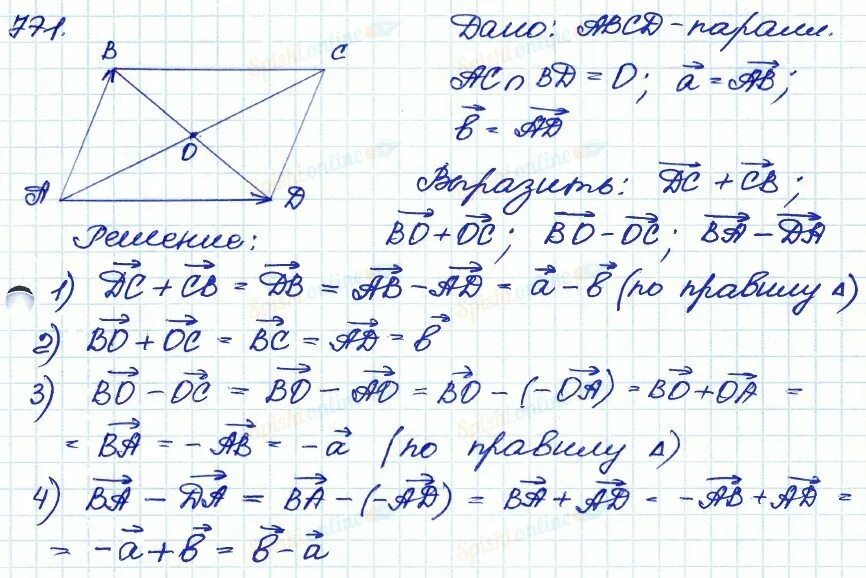 771.
B
C
O
A
D
Дано: ABCD - паралл.
AC ∩ BD = O; a⃗ = AB⃗;
b⃗ = AD⃗
Выразить: DC⃗ + CB⃗;
BO⃗ + OC⃗; BO⃗ - OC⃗; BA⃗ - DA⃗
Решение:
1) DC⃗ + CB⃗ = DB⃗ = AB⃗ - AD⃗ = a⃗ - b⃗ (по правилу Δ)
2) BO⃗ + OC⃗ = BC⃗ = AD⃗ = b⃗
3) BO⃗ - OC⃗ = BO⃗ - AO⃗ = BO⃗ - (-OA⃗) = BO⃗ + OA⃗ =
= BA⃗ = - AB⃗ = - a⃗ (по правилу Δ)
4) BA⃗ - DA⃗ = BA⃗ - (-AD⃗) = BA⃗ + AD⃗ = - AB⃗ + AD⃗ =
= - a⃗ + b⃗ = b⃗ - a⃗